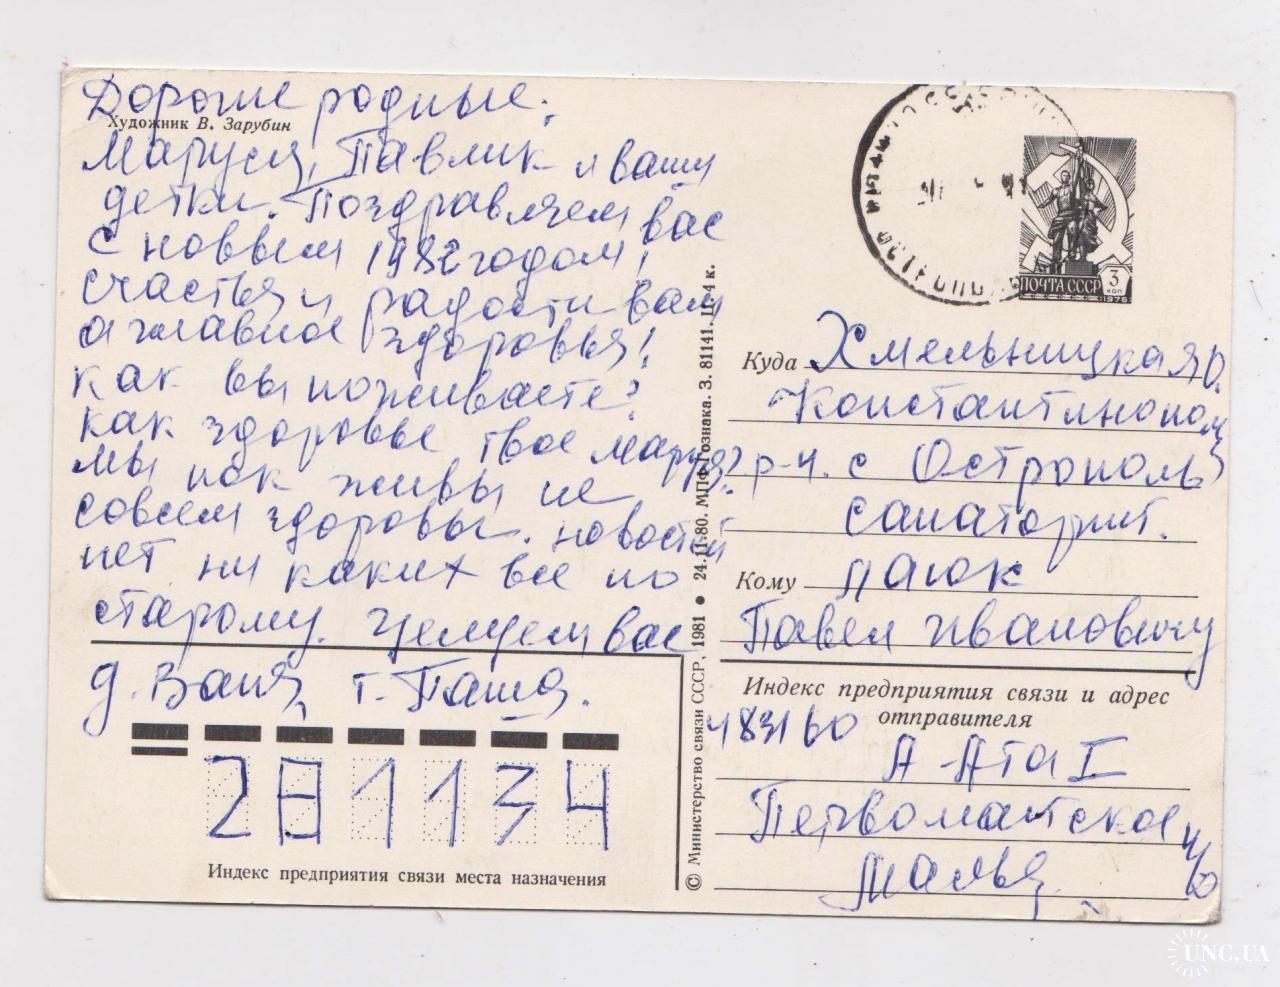 Дорогие родные.
Художник В. Зарубин
Маруся, Павлик и ваши
детки. Поздравляем вас
с новым 1982 годом,
счастья и радости вам
а главное здоровья!
как вы поживаете?
как здоровье твое Маруся?
мы пок живы не
совсем здоровы. новостей
нет ни каких все по
старому. целуем вас
д. Ваня, т. Паша.
281134
Индекс предприятия связи места назначения
© Министерство связи СССР, 1981 • 24.11.80. МПФ Гознака. З. 81141. Ц. 4 к.
ПОЧТА СССР 3 КОП
1976
Куда Хмельницкая о.
Константинопол
р-н. с Острополь
санаторий.
Кому
Павел Ивановичу
Индекс предприятия связи и адрес
отправителя
483160
А-Ата I
Первомайское
UNC.UA